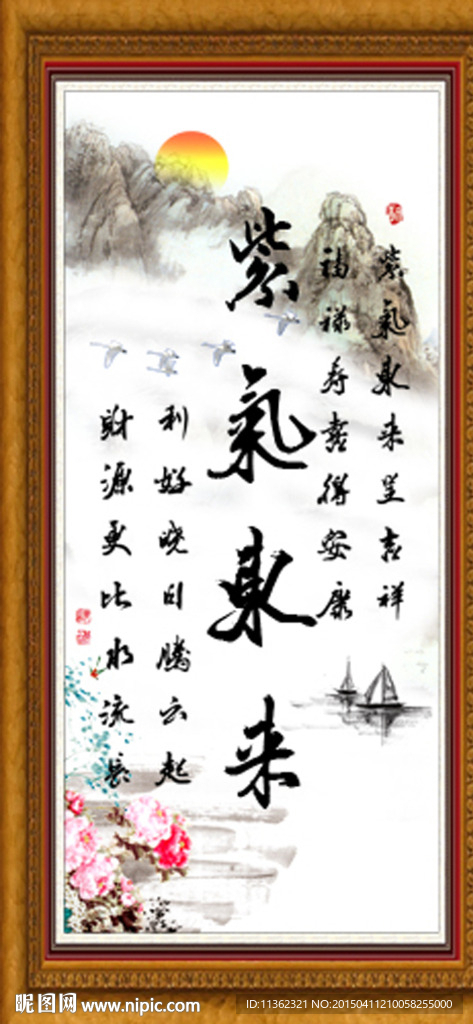 紫氣東来呈吉祥
福禄寿喜得安康
紫氣東来
利好晓日騰云起
財源更比水流長
昵图网 www.nipic.com
ID:11362321 NO:20150411210058255000